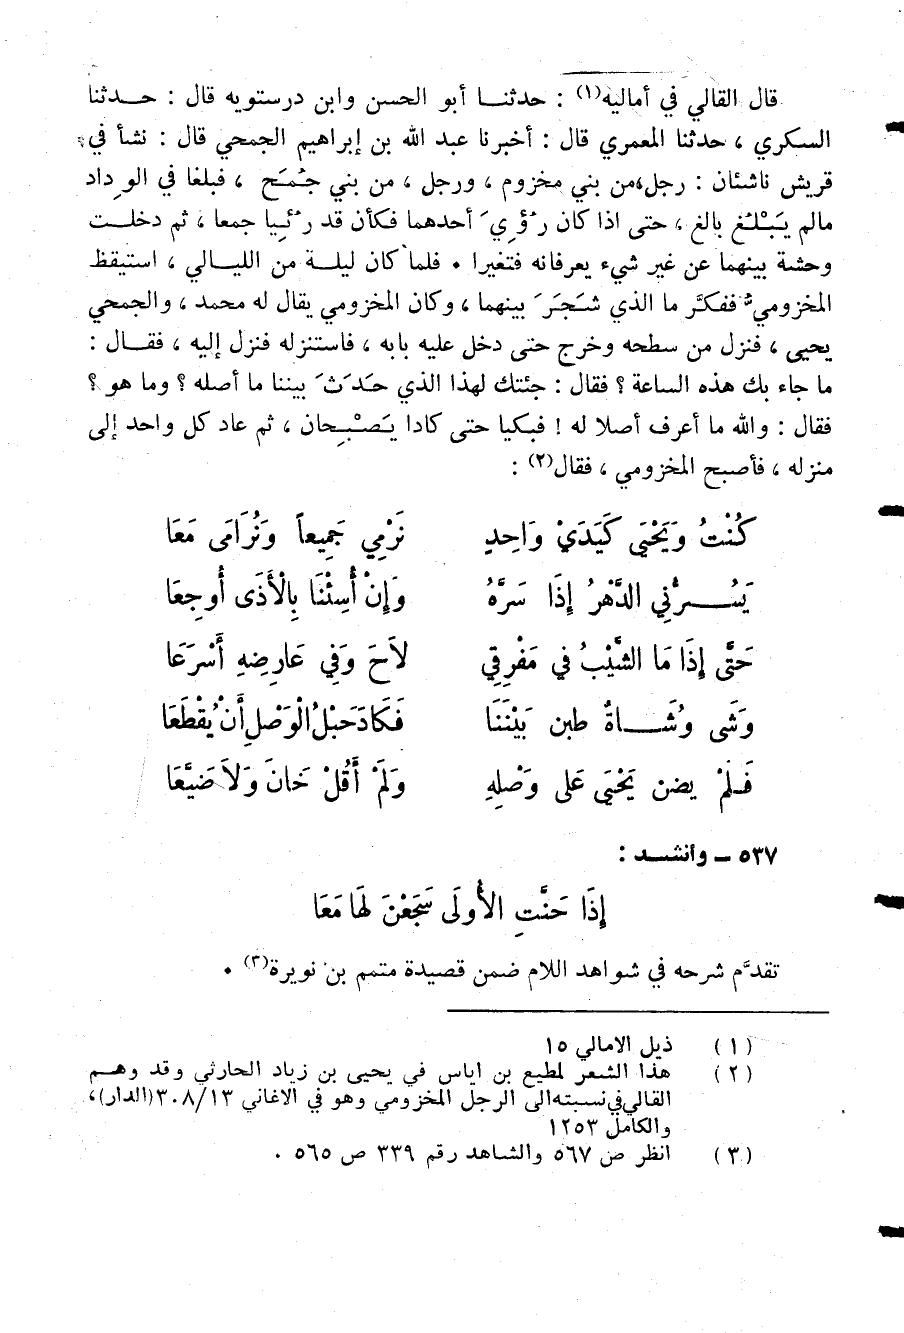 قال القالي في أماليه(١) : حدثنــا أبو الحسن وابن درستويه قال : حــدثنا
السكري ، حدثنا المعمري قال : أخبرنا عبد الله بن إبراهيم الجمحي قال : نشأ في
قريش ناشئان : رجل من بني مخزوم ، ورجل ، من بني جُمَح ، فبلغا في الوداد
مالم يَبْلُغ بالغ ، حتى اذا كان رُؤيَ أحدهما فكأن قد رُئيا جمعا ، ثم دخلــت
وحشة بينهما عن غير شيء يعرفانه فتغيرا . فلما كان ليلــة من الليــالي ، استيقظ
المخزومي ففكَّر ما الذي شَجَرَ بينهما ، وكان المخزومي يقال له محمد ، والجمحي
يحيى ، فنزل من سطحه وخرج حتى دخل عليه بابه ، فاستنزله فنزل إليه ، فقــال :
ما جاء بك هذه الساعة ؟ فقال : جئتك لهذا الذي حَدَثَ بيننا ما أصله ؟ وما هو ؟
فقال : والله ما أعرف أصلا له ! فبكيا حتى كادا يَصْبِحان ، ثم عاد كل واحد إلى
منزله ، فأصبح المخزومي ، فقال(٢) :
كُنْتُ وَيَحْيَى كَيَدَيْ وَاحِدٍ نَرْمِي جَمِيعاً وَنُرَامَى مَعَا
يَسُــرُّنِي الدَّهْرُ إِذَا سَرَّهُ وَإِنْ أُسِئْنَا بِالْأَذَى أُوجِعَا
حَتَّى إِذَا مَا الشَّيْبُ فِي مَفْرِقِي لاَحَ وَفِي عَارِضِهِ أَسْرَعَا
وَشَى وُشَــاةٌ طبن بَيْنَنَا فَكَادَ حَبْلُ الْوَصْلِ أَنْ يُقْطَعَا
فَلَمْ يضن يَحْيَى عَلى وَصْلِهِ وَلَمْ أَقُلْ خَانَ وَلاَ ضَيَّعَا
٥٣٧ – وأنشــد :
إِذَا حَنَّتِ الأُولَى سَجَعْنَ لَهَا مَعَا
تقدَّم شرحه في شواهد اللام ضمن قصيدة متمم بن نويرة(٣) .
(١) ذيل الامالي ١٥
(٢) هذا الشعر لمطيع بن اياس في يحيى بن زياد الحارثي وقد وهــم
القالي في نسبته الى الرجل المخزومي وهو في الاغاني ٣٠٨/١٣ (الدار)،
والكامل ١٢٥٣
(٣) انظر ص ٥٦٧ والشاهد رقم ٣٣٩ ص ٥٦٥ .